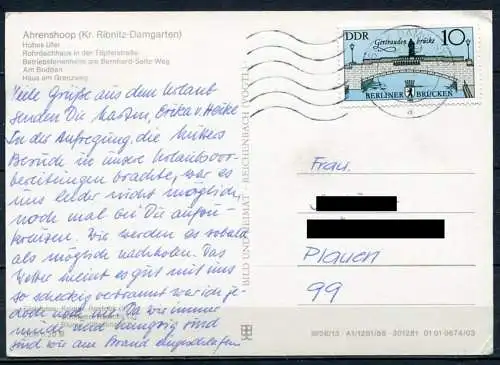 Ahrenshoop (Kr. Ribnitz-Damgarten)
Hohes Ufer
Rohrdachhaus in der Töpferstraße
Betriebsferienheim am Bernhard-Seitz Weg
Am Bodden
Haus am Grenzweg
Viele Grüße aus dem Urlaub
senden Dir Erika u. Heike
In der Aufregung, die
Besuch in unsere Urlaubsvor-
bereitungen brachte, war es
uns leider nicht möglich,
noch mal bei Dir aufzu-
kreuzen. Wir werden es sobald
als möglich nachholen. Das
Wetter meint es gut mit uns
so scheckig verbrannt war ich je-
doch noch nie. Da wir immer
müde und hungrig sind
sind wir am Strand eingeschlafen
BILD UND HEIMAT · REICHENBACH (VOGTL)
DDR
Gertraudenbrücke
10
BERLINER BRÜCKEN
Frau
Plauen
99
A1/1281/86 301281 01 01 0674/03